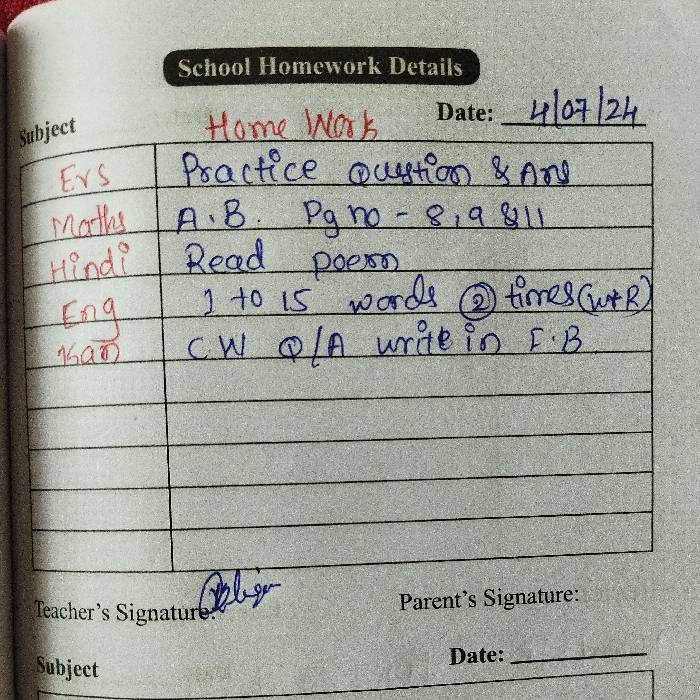 School Homework Details
Subject Home Work Date: 4/07/24
Evs Practice Question & Ans
Maths A.B. Pg no - 8, 9 & 11
Hindi Read poem
Eng 1 to 15 words ② times (W+R)
Kan C.W Q/A write in F.B
Teacher's Signature: Parent's Signature:
Subject Date: